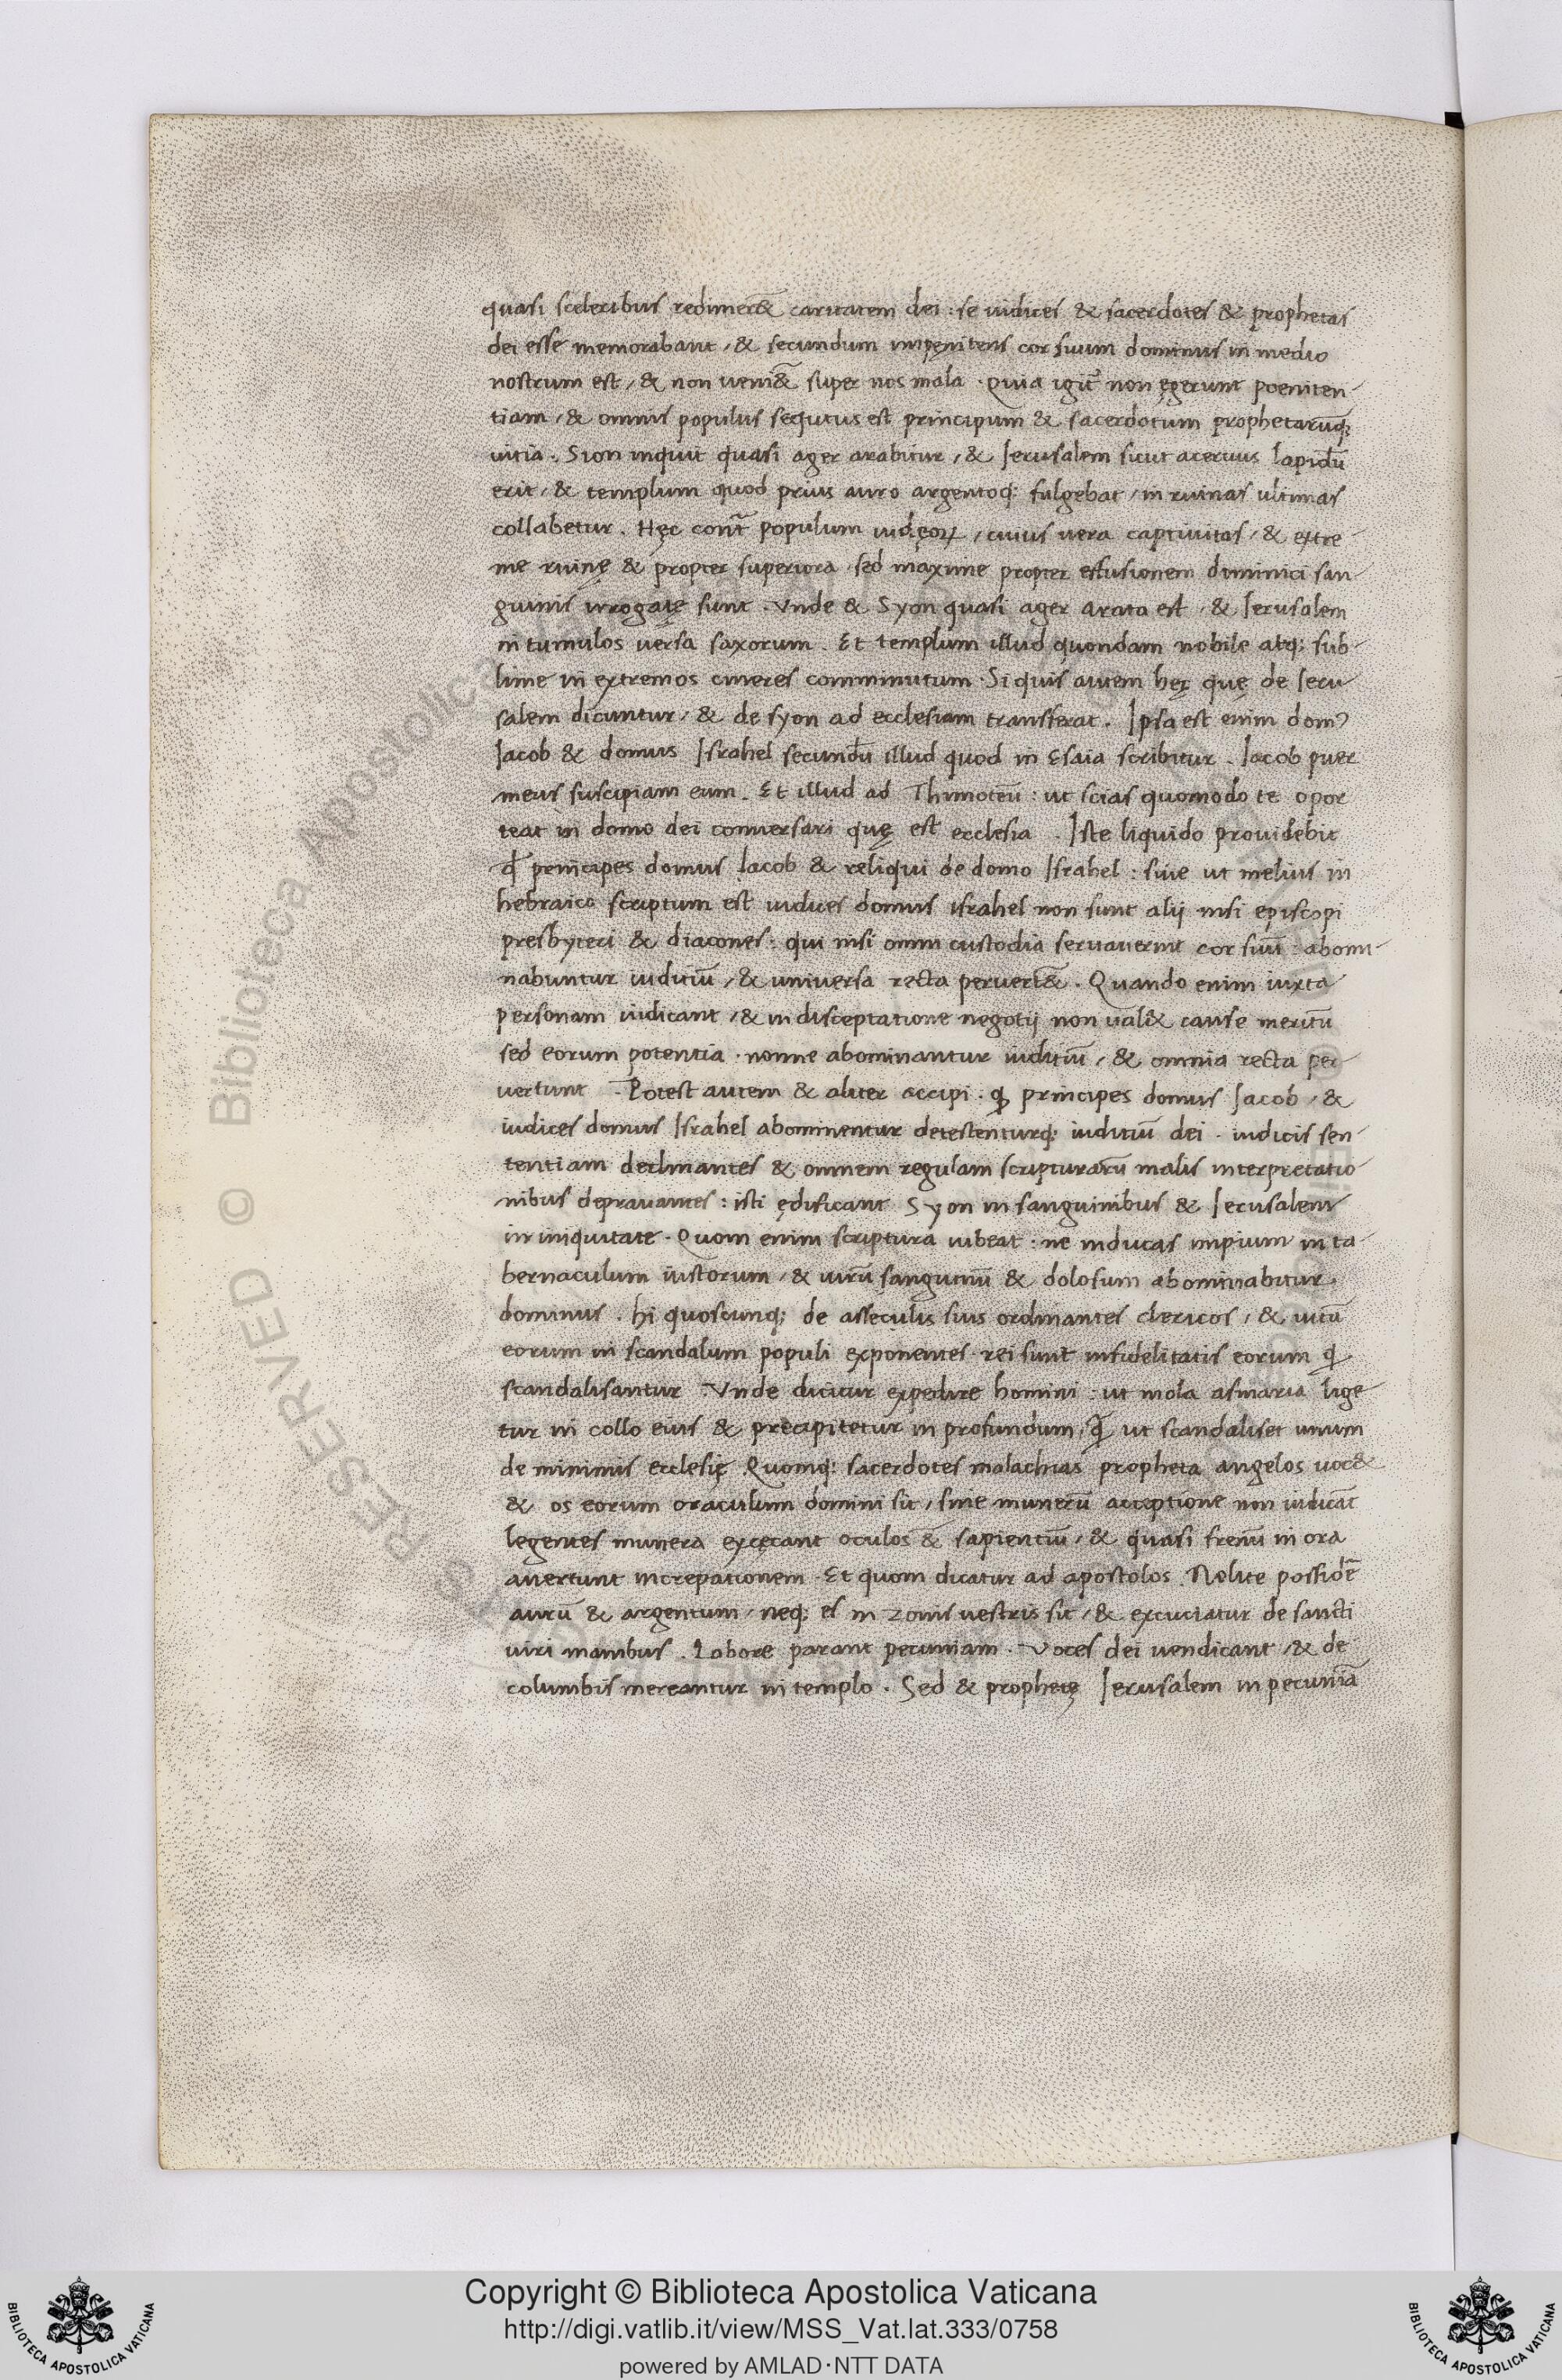 quasi sceleribus redimer&̃ caritatem dei : se iudices & sacerdotes & prophetas
dei esse memorabant / & secundum impęnitens cor suum dominus in medio
nostrum est / & non ueni&̃ super nos mala . Quia igit̃ non ęgerunt poeniten-
tiam / & omnis populus sequtus est principum & sacerdotum prophetarūq;
uitia . Sion inquit quasi ager arabitur / & Jerusalem sicut aceruus lapidū
erit / & templum quod prius auro argentoq; fulgebat / in ruinas ultimas
collabetur . Hęc cont̃ populum iudęoꝝ / cuius uera captiuitas / & extre
me ruinę & propter superiora sed maxime propter effusionem diminici san-
guinis irrogatę sunt . Vnde & Syon quasi ager arata est / & Jerusalem
in tumulos uersa saxorum . Et templum illud quondam nobile atq; sub-
lime in extremos cineres comminutum . Si quis autem hęc quę de Jeru
salem dicuntur / & de syon ad ecclesiam transferat . Ipsa est enim domꝰ
Jacob & domus Israhel secundū illud quod in Esaia scribitur . Jacob puer
meus suscipiam eum . Et illud ad Thimoteū : ut scias quomodo te opor
teat in domo dei conuersari quę est ecclesia . Iste liquido prouidebit
ꝙ principes domus Jacob & reliqui de domo Israhel : siue ut melius in
hebraico scriptum est iudices domus israhel non sunt alij nisi episcopi
presbyteri & diacones : qui nisi omni custodia seruauerint cor suū : abomi-
nabuntur iuditiū / & uniuersa recta peruert&̃ . Quando enim iuxta
personam iudicant / & in disceptatione negotij non ualēt cause meritū
sed eorum potentia . nonne abominantur iuditiū / & omnia recta per
uertunt . Potest autem & aliter accipi . ꝙ principes domus Jacob / &
iudices domus Israhel abominentur detestenturq; iuditiū dei . iudicis sen-
tentiam declinantes & omnem regulam scripturarū malis interpretatio-
nibus deprauantes : isti ędificant Syon in sanguinibus & Jerusalem
in iniquitate . Quom enim scriptura iubeat : ne inducas impium in ta-
bernaculum iustorum / & uirū sanguinū & dolosum abominabitur
dominus . hi quoscunq; de asseculis suis ordinantes clericos / & uitā
eorum in scandalum populi exponentes rei sunt infidelitatis eorum q̄
scandalisantur Vnde dicitur expedire homini : ut mola asinaria lige
tur in collo eius & precipitetur in profundum / q̄ ut scandaliset unum
de minimis ecclesię Quomq; sacerdotes malachias propheta angelos uoc&
& os eorum oraculum domini sit / sine munerū acceptione non iudicāt
legentes munera excęcant oculos & sapientiū / & quasi frenū in ora
auertunt increpationem Et quom dicatur ad apostolos . Nolite possidē
aurū & argentum / neq; es in zonis uestris sit / & excutiatur de sancti
uiri manibus . Labore parant pecuniam . Voces dei uendicant / & de
columbis mercantur in templo . Sed & prophetę Jerusalem in pecuniā
© Biblioteca Apostolica
RESERVED
BIBLIOTECA APOSTOLICA VATICANA
Copyright © Biblioteca Apostolica Vaticana
http://digi.vatlib.it/view/MSS_Vat.lat.333/0758
powered by AMLAD·NTT DATA
BIBLIOTECA APOSTOLICA VATICANA